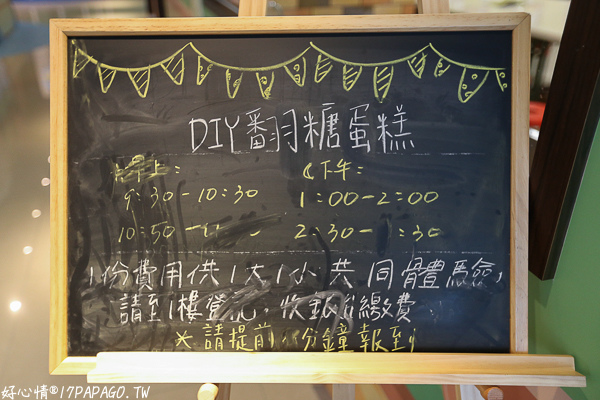 DIY翻糖蛋糕
早上： 下午：
9:30-10:30 1:00-2:00
10:50- 2:30- :30
1份費用供1大1小共同體驗，
請至1樓登記，收銀台繳費
*請提前 分鐘報到
好心情®17PAPAGO.TW